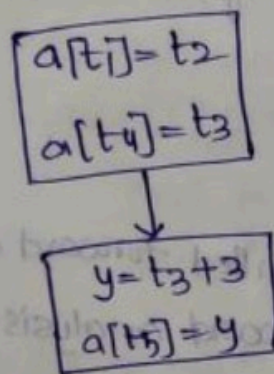 a[t1]=t2
a[t4]=t3
y=t3+3
a[t5]=y